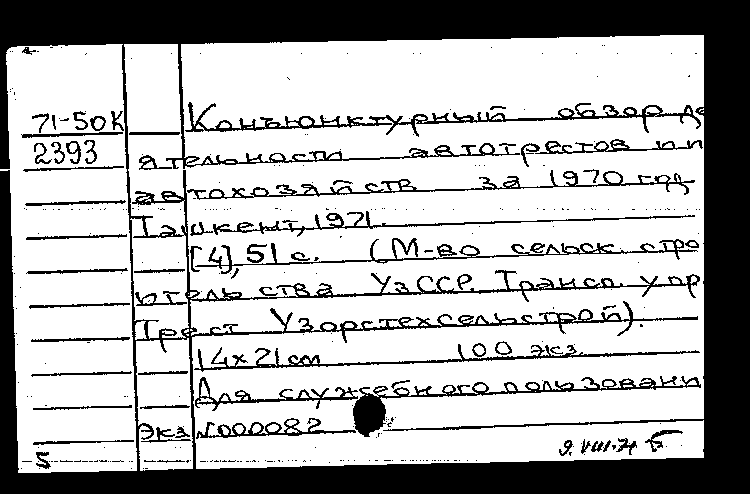 71-50К
2393
Конъюнктурный обзор де
ятельности автотрестов и п
автохозяйств за 1970 год
Ташкент, 1971.
[4], 51 с. (М-во сельск. стро
ительства УзССР. Трансп. упр
Трест Узоргтехсельстрой).
14х21см 100 экз.
Для служебного пользовани
Экз №000082
9.VIII.71
Б